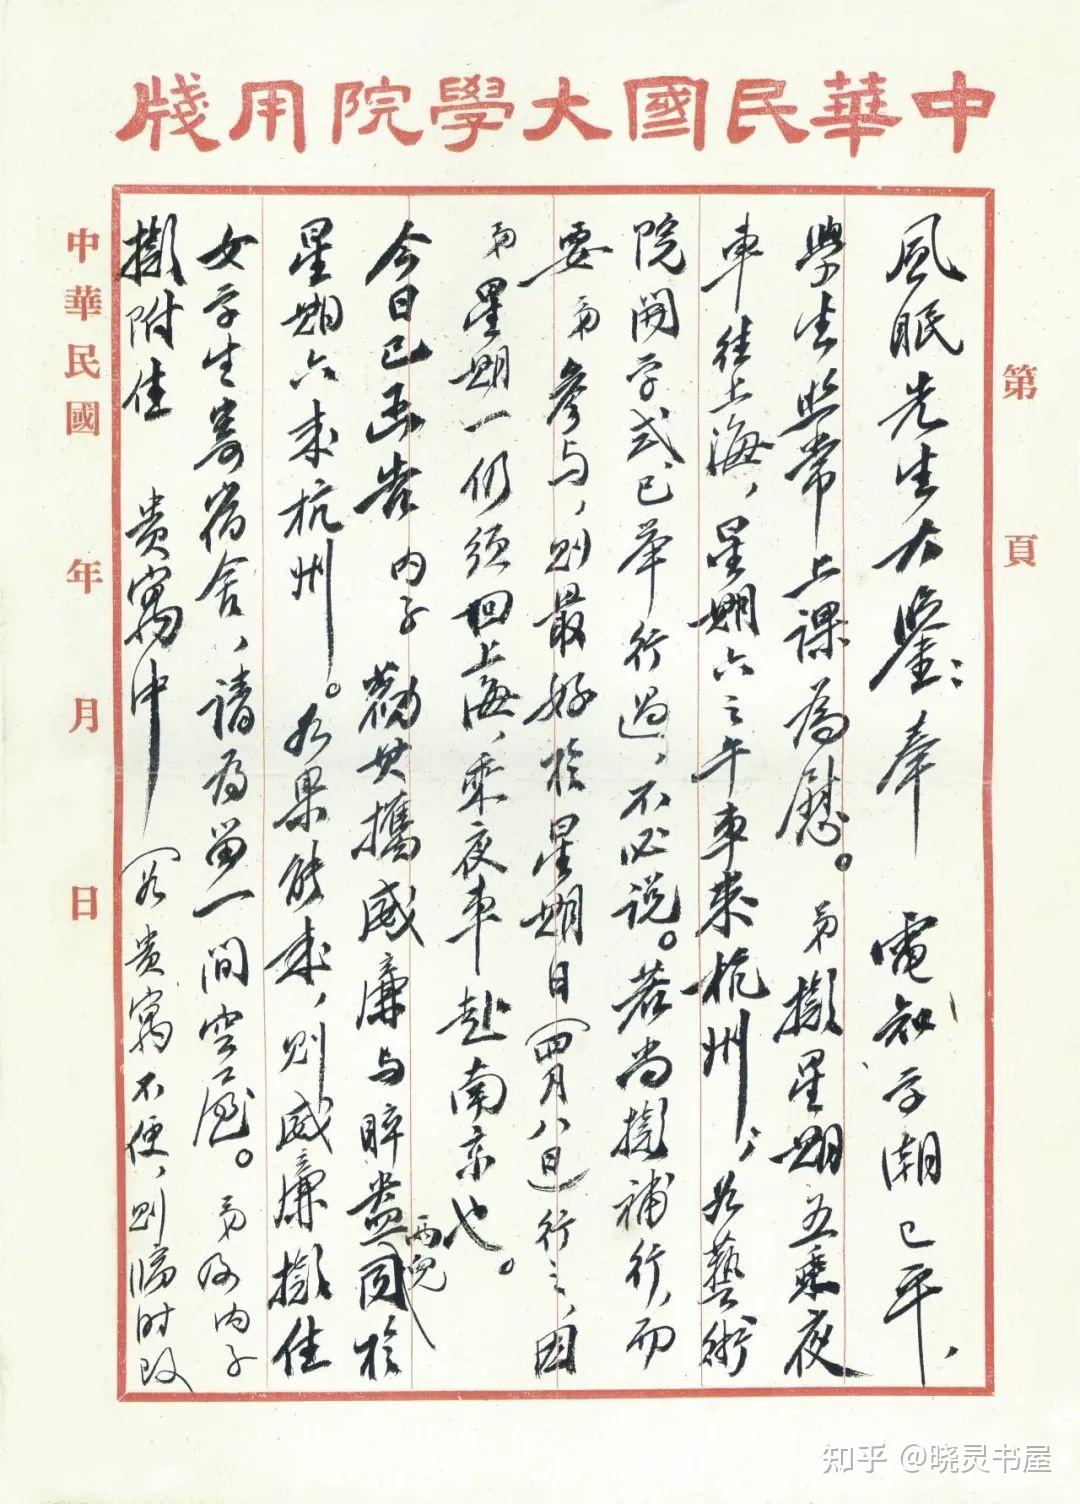 中華民國大學院用牋
第 頁
風眠先生大鑒：奉 電知學潮已平，
學生照常上課為慰。弟擬星期五乘夜
車往上海，星期六之午車來杭州；如藝術
院開学式已举行過，不必説。若尚擬補行，而
要弟参与，則最好於星期日（四月八日）行之，因
弟星期一仍須回上海，乘夜車赴南京也。
今日已函告內子勸其攜威廉与睟盎兩兒同於
星期六來杭州。如果能來，則威廉擬住
女学生寄宿舍，請為留一間空屋。弟及內子
擬附住 貴寓中（若貴寓不便，則臨时改
中華民國 年 月 日
知乎 @晓灵书屋